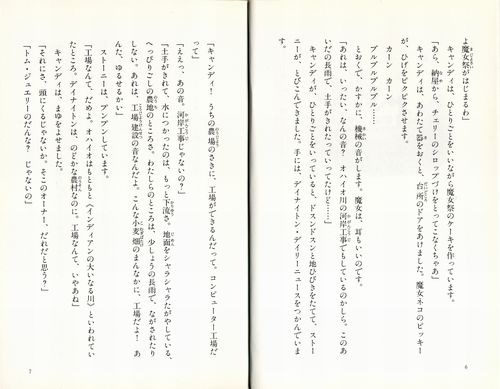 よ魔女祭がはじまるわ」
キャンディは、ひとりごとをいいながら魔女祭のケーキを作っています。
「あら、納屋から、チェリーのシロップづけをとってこなくちゃあ」
キャンディは、あわてて器をおくと、台所のドアをあけました。魔女ネコのビッキー
が、ひげをピクピクさせます。
カーン　カーン
ブルブルブルブル……
とおくで、かすかに、機械の音がします。魔女は、耳もいいのです。
「あれは、いったい、なんの音？　オハイオ川の河岸工事でもしているのかしら。このあ
いだの長雨で、土手がきれたっていってたけど……」
キャンディが、ひとりごとをいっていると、ドスンドスンと地ひびきをたてて、ストー
ニーが、とびこんできました。手には、デイナイトン・デイリーニュースをつかんでいま
す。
6
「キャンディ！　うちの農場のさきに、工場ができるんだって。コンピューター工場だ
って」
「ええっ、あの音。河岸工事じゃないの？」
「土手がきれて、水につかったのは、もっと下流さ。地面をシャラシャラたがやしている、
へっぴりごしの農地のところさ。わたしらのところは、少しょうの長雨で、ながされたり
しない。あれは、工場建設の音なんだよ。こんな小麦畑のまんなかに、工場だよ！　あ
んた、ゆるせるかい」
ストーニーは、プンプンしています。
「工場なんて、だめよ。オハイオはもともと〈インディアンの大いなる川〉といわれてい
たところ。デイナイトンは、のどかな農村なのに。工場なんて、いやあね」
キャンディは、まゆをよせました。
「それにさ、頭にくるじゃないか。そこのオーナー、だれだと思う？」
「トム・ジュエリーのだんな？　じゃないの」
7